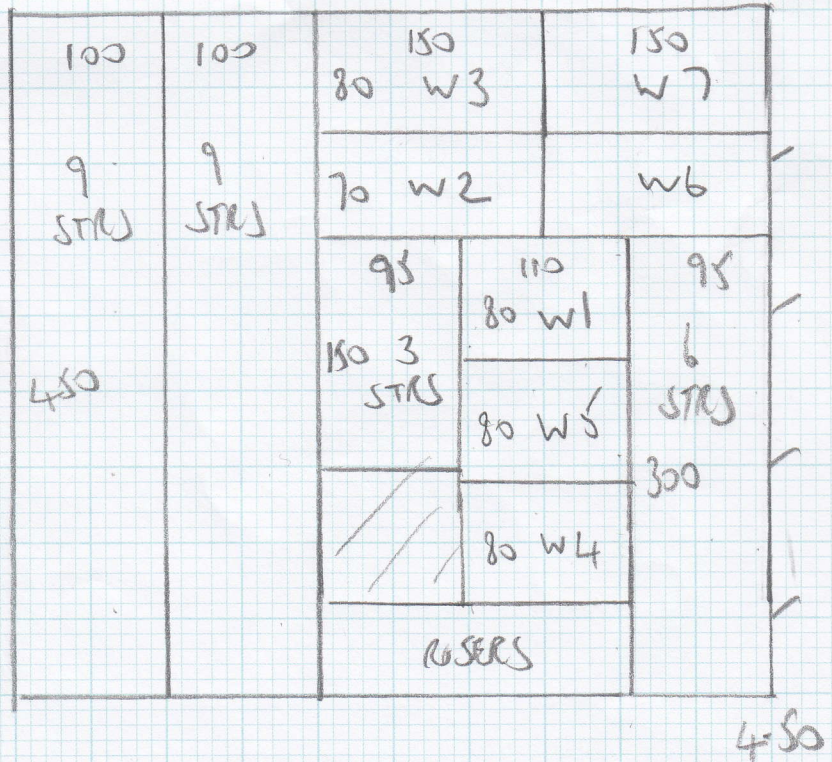 100
9
STRS
450
100
9
STRS
150
80 W3
70 W2
150
W7
W6
95
150 3
STRS
110
80 W1
80 W5
80 W4
95
6
STRS
300
RISERS
4.50